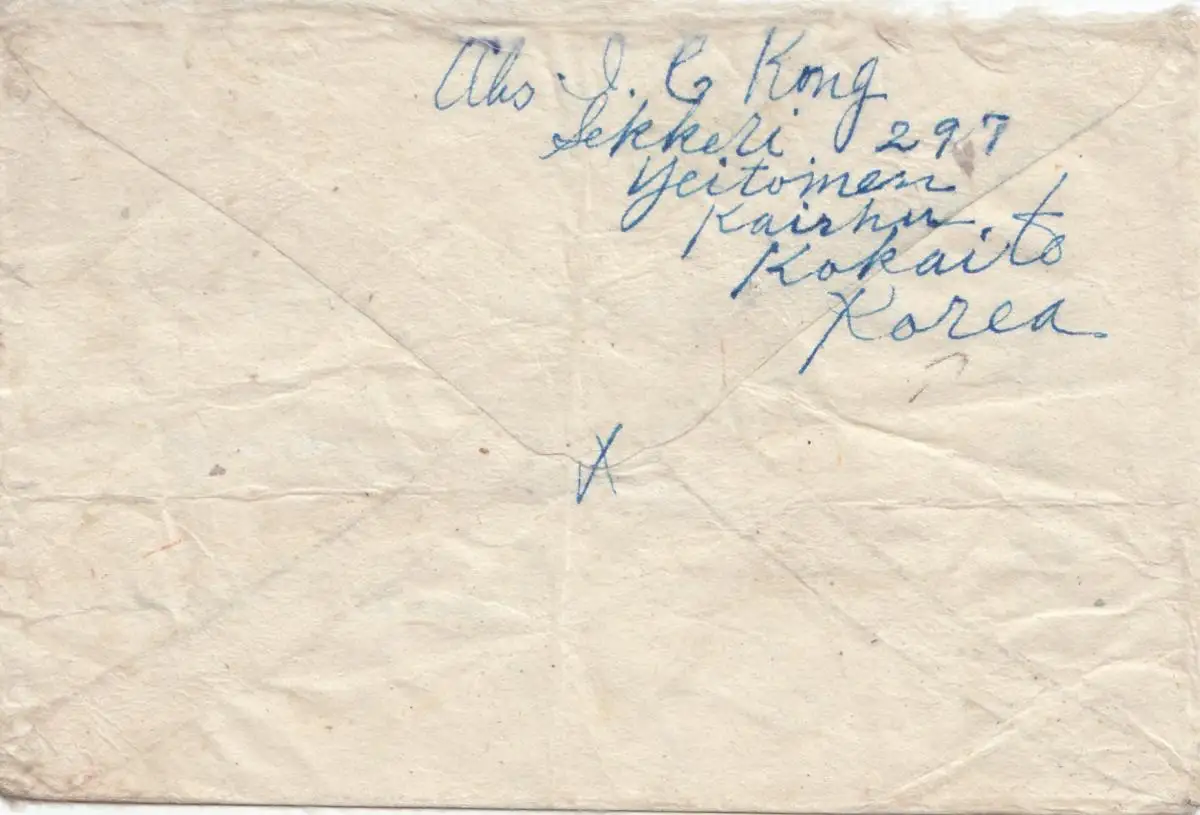 Abs. I. C Kong
Sekkeri 297
Yeitomen
Kaishu
Kokaito
Korea